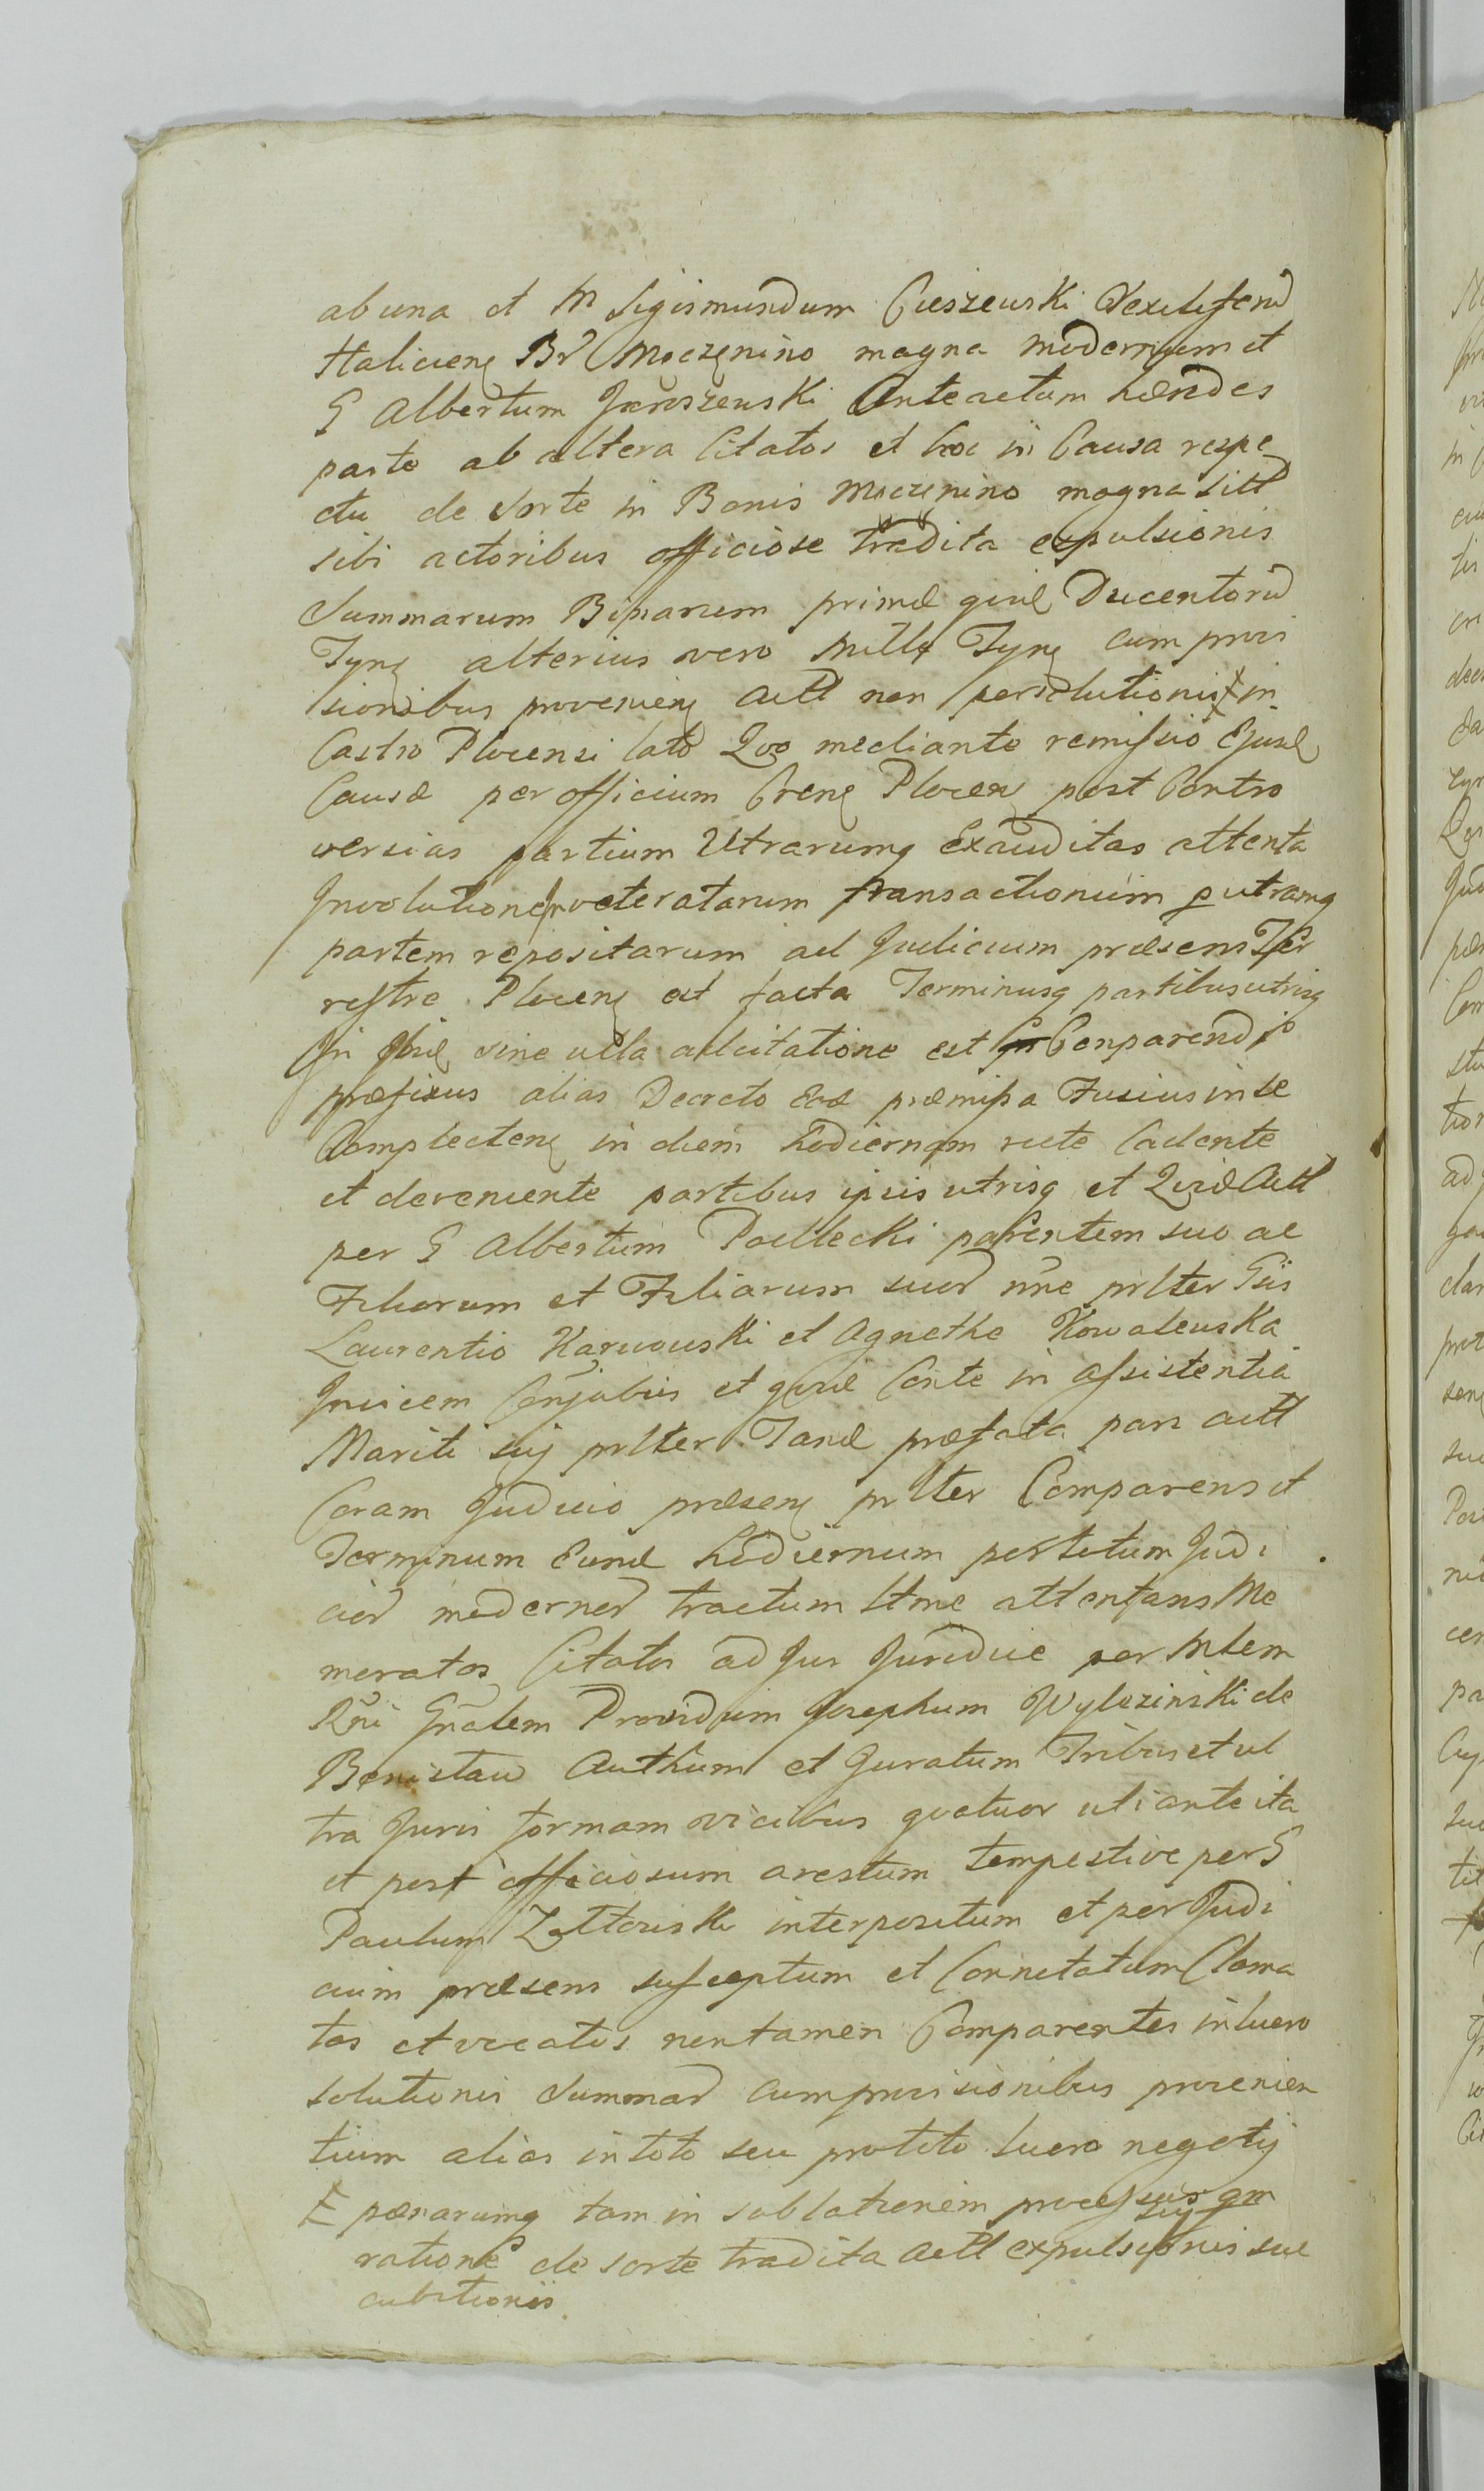 ab una et M Sigismundum Cieszewski Vexilliferū
Halicieng Br Moczenino magna modernum et
G Albertum Jaroszewski Anteactum hæredes
parte ab altera Citatos et hoc in Causa respe
ctu de Sorte in Bonis Moczenino magna sitt
sibi actoribus officiose tradita expulsionis
Summarum Binarum primæ Ducentorū
Tynę alterius vero Mille Tynę cum provi
sionibus provenienę Actt non persolutionis in
Castro Plocensi lato Quo mediante remissio Ejusd
Causæ per officium Plocen post Contro
versias partium Utrarumq Exauditas attenta
Involutione inveteratarum transactionum p utramq
partem repositarum ad Judicium præsens Ter
restre Plocenę est facta Terminusq partibus utrisq
In sine ulla adcitatione est Conparendi
præfixus alias Decreto præmissa Fusius in se
Complectenę in diem hodiernam recte Cadente
et deveniente partibus ipsis utrisq et Actt
per G Albertum parentem suo ac
Filiorum et Filiarum suorū nōe prltter Giis
Laurentio Karwowski et Agnethe Kowalewska
Invicem Conjubus et Conte in Assistentia
Mariti sui prltter Tanđ præfata pars actt
Coram Judicio præsenę prltter Comparens et
Terminum Eund hodiernum per totum Judi
ciorū modernorū tractum attentans Me
moratos Citatos ad Jus Juridice per Mlem
Rńi Gńalem Providum Josephum Wylezinski de
Authum et Juratum Tribus et ul
tra Juris formam vicibus quatuor uti ante ita
et post officiosum arestum tempestive per G
Paulum interpositum et per Judi
cium præsens susceptum et Connotatum Clama
tos et vocatos non tamen Comparentes in lucro
solutionis Summarū cum provisionibus provenien
tium alias in toto seu pro toto lucro negotij
pœnarumq tam in sublationem processus
ratione de sorte tradita Actt expulsionis suc
cubitionis